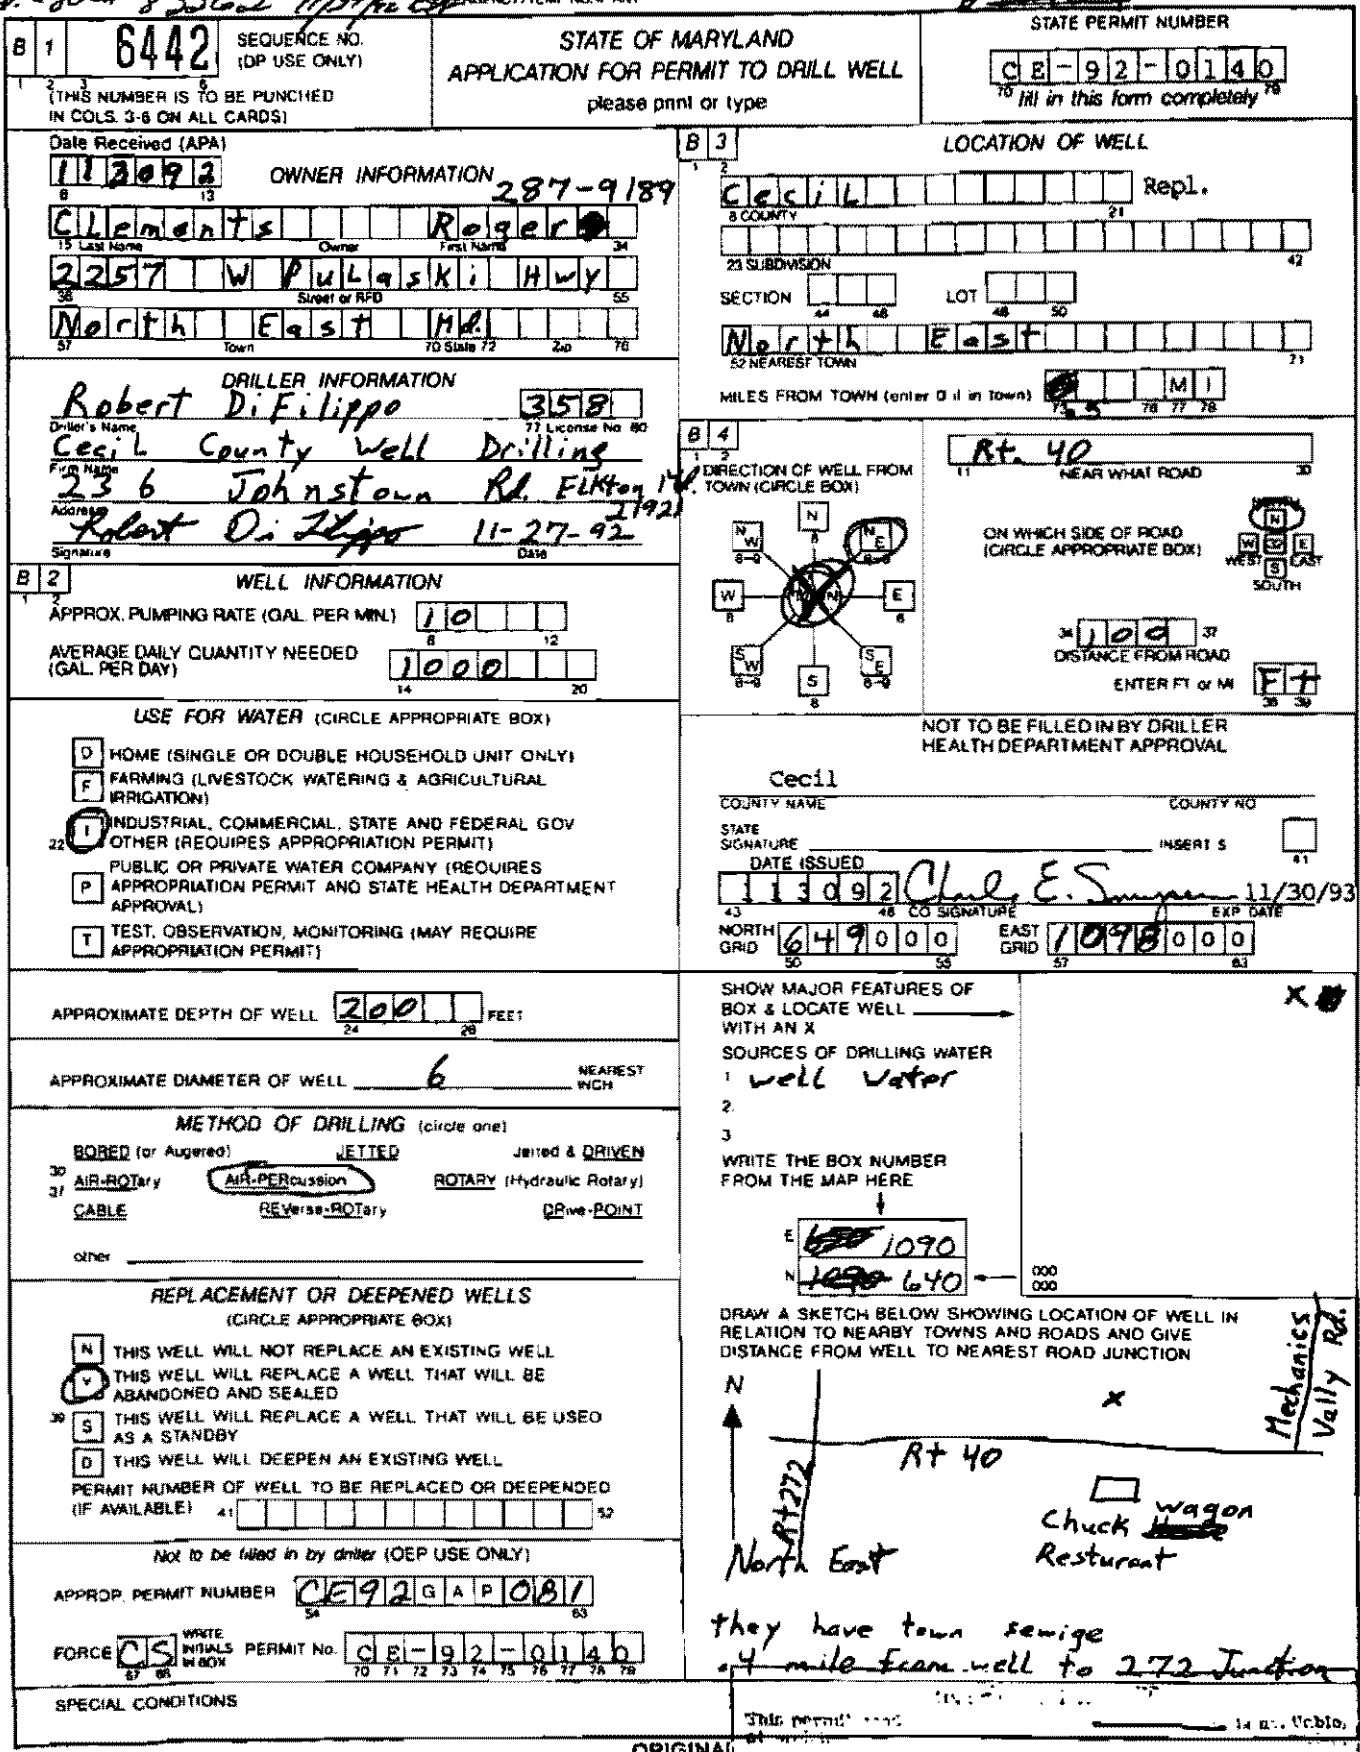 B 1 6442 SEQUENCE NO. (DP USE ONLY)
1 2 3 6
(THIS NUMBER IS TO BE PUNCHED
IN COLS. 3-6 ON ALL CARDS)
STATE OF MARYLAND
APPLICATION FOR PERMIT TO DRILL WELL
please print or type
STATE PERMIT NUMBER
CE-92-0140
70 fill in this form completely 79
Date Received (APA)
113092
8 13
OWNER INFORMATION
287-9189
CLements Roger
15 Last Name Owner First Name 34
2257 W PuLaski Hwy
36 Street or RFD 55
North East Md.
57 Town 70 State 72 Zip 76
DRILLER INFORMATION
Robert DiFilippo 358
Driller's Name 77 License No 80
CeciL County Well Drilling
Firm Name
236 Johnstown Rd. ELKton Md.
21921
Address
Robert DiFilippo 11-27-92
Signature Date
B 2 WELL INFORMATION
1 2
APPROX. PUMPING RATE (GAL. PER MIN.) 10
8 12
AVERAGE DAILY QUANTITY NEEDED
(GAL. PER DAY) 1000
14 20
USE FOR WATER (CIRCLE APPROPRIATE BOX)
D HOME (SINGLE OR DOUBLE HOUSEHOLD UNIT ONLY)
F FARMING (LIVESTOCK WATERING & AGRICULTURAL
IRRIGATION)
I INDUSTRIAL, COMMERCIAL, STATE AND FEDERAL GOV
22 OTHER (REQUIRES APPROPRIATION PERMIT)
P PUBLIC OR PRIVATE WATER COMPANY (REQUIRES
APPROPRIATION PERMIT AND STATE HEALTH DEPARTMENT
APPROVAL)
T TEST, OBSERVATION, MONITORING (MAY REQUIRE
APPROPRIATION PERMIT)
APPROXIMATE DEPTH OF WELL 200 FEET
24 28
APPROXIMATE DIAMETER OF WELL 6 NEAREST
INCH
METHOD OF DRILLING (circle one)
BORED (or Augered) JETTED Jetted & DRIVEN
30 AIR-ROTary AIR-PERcussion ROTARY (Hydraulic Rotary)
37
CABLE REVerse-ROTary DRive-POINT
other
REPLACEMENT OR DEEPENED WELLS
(CIRCLE APPROPRIATE BOX)
N THIS WELL WILL NOT REPLACE AN EXISTING WELL
Y THIS WELL WILL REPLACE A WELL THAT WILL BE
ABANDONED AND SEALED
39 S THIS WELL WILL REPLACE A WELL THAT WILL BE USED
AS A STANDBY
D THIS WELL WILL DEEPEN AN EXISTING WELL
PERMIT NUMBER OF WELL TO BE REPLACED OR DEEPENED
(IF AVAILABLE) 41 52
Not to be filled in by driller (OEP USE ONLY)
APPROP. PERMIT NUMBER CE92GAP081
54 63
FORCE CS WRITE INITIALS IN BOX PERMIT No. CE-92-0140
67 68 70 71 72 73 74 75 76 77 78 79
SPECIAL CONDITIONS
B 3 LOCATION OF WELL
1 2
CeciL Repl.
8 COUNTY 21
23 SUBDIVISION 42
SECTION LOT
44 46 48 50
North East
52 NEAREST TOWN 71
MILES FROM TOWN (enter 0 if in town) .5 MI
73 76 77 78
B 4
1 2
DIRECTION OF WELL FROM
TOWN (CIRCLE BOX)
N
NW NE
W E
SW SE
S
Rt. 40
11 NEAR WHAT ROAD 30
ON WHICH SIDE OF ROAD
(CIRCLE APPROPRIATE BOX)
N
W E
WEST EAST
S
SOUTH
34 100 37
DISTANCE FROM ROAD
ENTER FT or MI Ft
38 39
NOT TO BE FILLED IN BY DRILLER
HEALTH DEPARTMENT APPROVAL
Cecil
COUNTY NAME COUNTY NO
STATE
SIGNATURE INSERT S
41
DATE ISSUED
113092 11/30/93
43 48 CO SIGNATURE EXP DATE
NORTH GRID 649000 EAST GRID 1098000
50 55 57 63
SHOW MAJOR FEATURES OF
BOX & LOCATE WELL
WITH AN X
X
SOURCES OF DRILLING WATER
1 weLL Water
2.
3
WRITE THE BOX NUMBER
FROM THE MAP HERE
E 1090
N 640
000
000
DRAW A SKETCH BELOW SHOWING LOCATION OF WELL IN
RELATION TO NEARBY TOWNS AND ROADS AND GIVE
DISTANCE FROM WELL TO NEAREST ROAD JUNCTION
N
X
Mechanics
Vally Rd.
Rt 40
Rt 272
Chuck Wagon
Resturant
North East
they have town sewige
.4 mile from well to 272 Junction
This permit
ORIGINAL